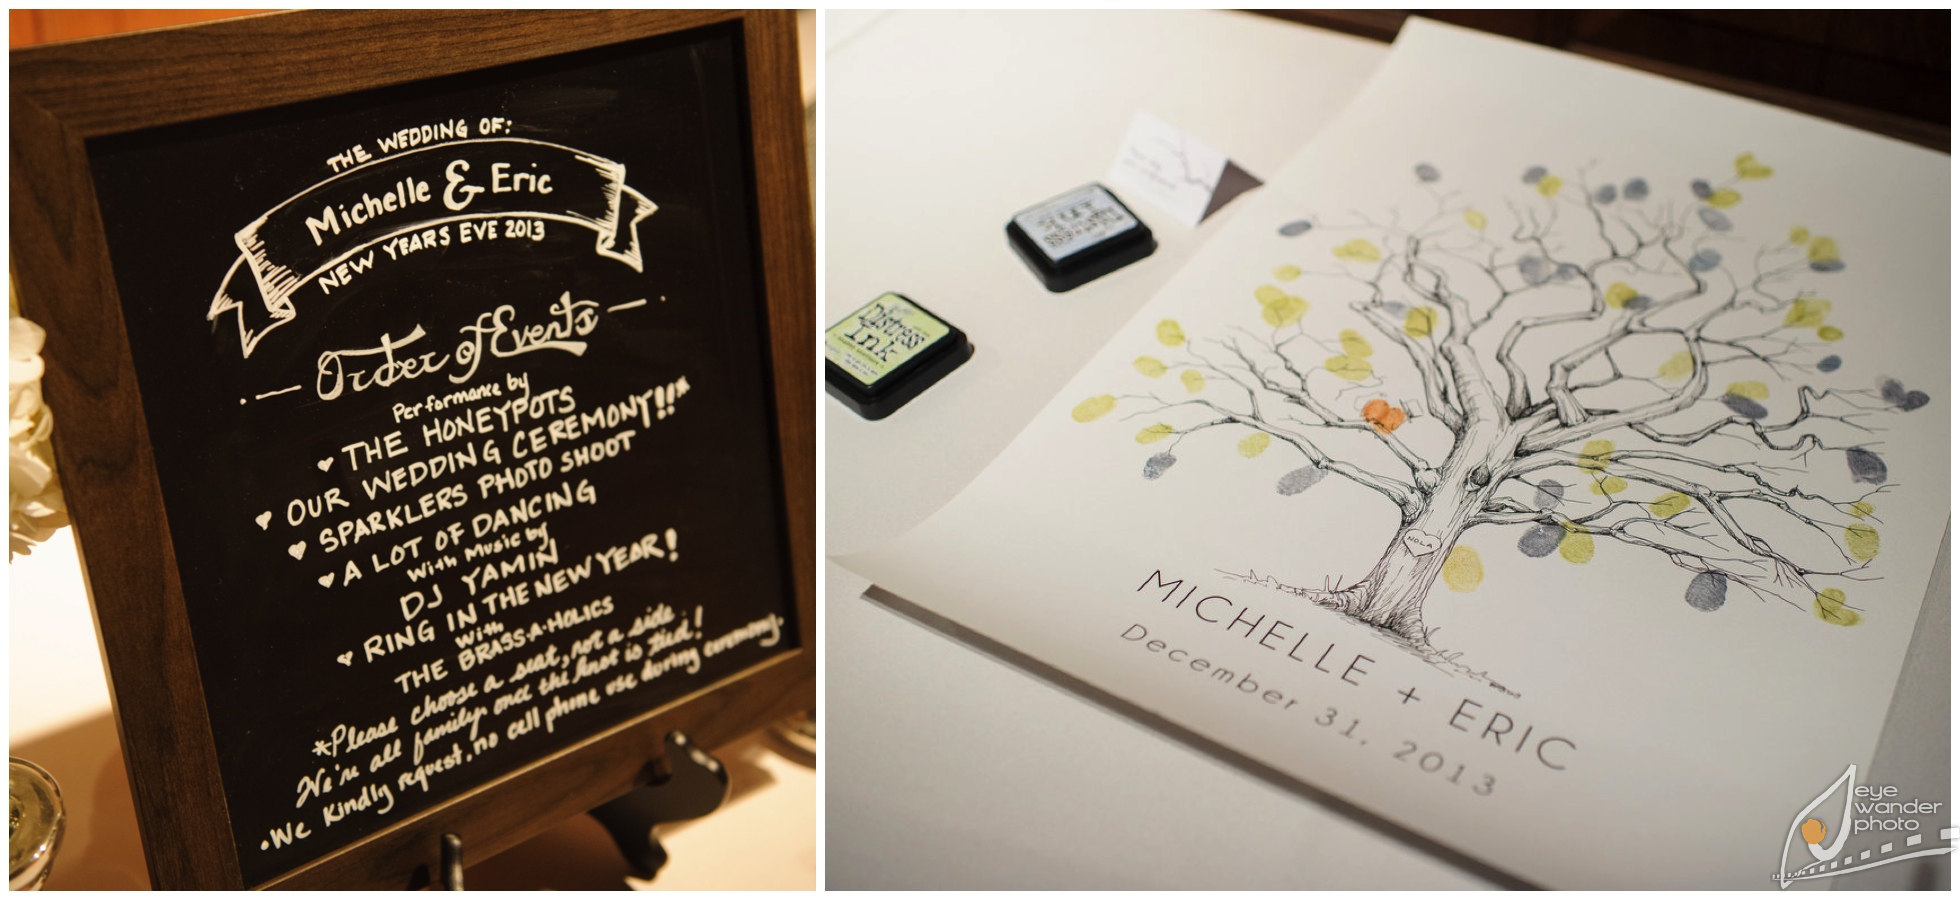 THE WEDDING OF:
Michelle & Eric
NEW YEARS EVE 2013
Order of Events
Performance by
THE HONEYPOTS
OUR WEDDING CEREMONY!!*
SPARKLERS PHOTO SHOOT
A LOT OF DANCING
With Music by
DJ YAMIN
RING IN THE NEW YEAR!
With
THE BRASS-A-HOLICS
*Please choose a seat, not a side
We're all family once the knot is tied!
•We Kindly request, no cell phone use during ceremony.
Distress
Ink
NOLA
MICHELLE + ERIC
December 31, 2013
eye
wander
photo